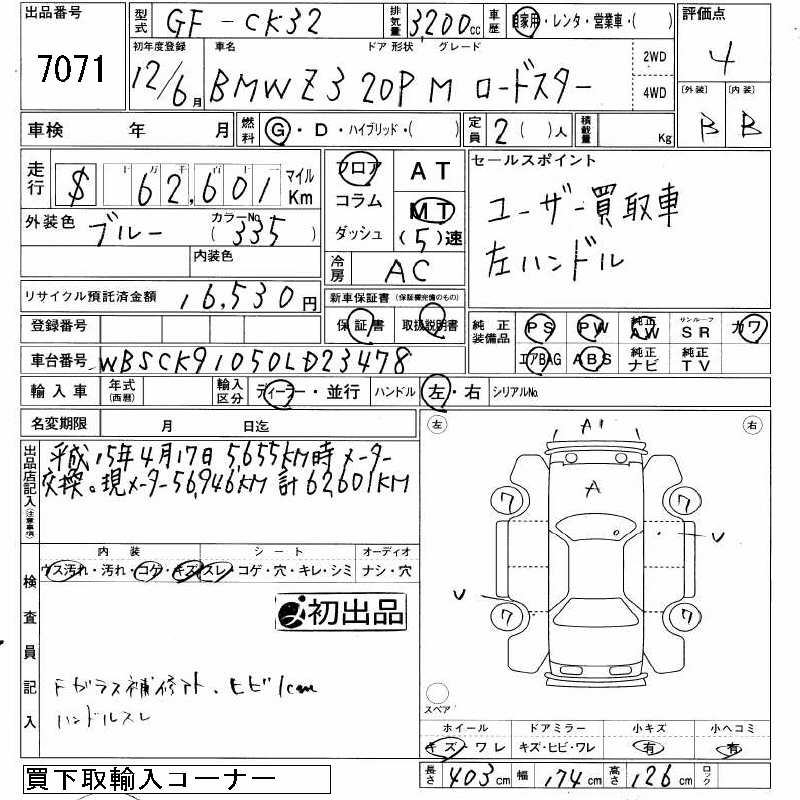 出品番号 7071
型式 GF-CK32
排気量 3200cc
車歴 自家用・レンタ・営業車・( )
評価点 4
初年度登録 12/6月
車名 ドア 形状 グレード
BMW Z3 2DP M ロードスター
2WD
4WD
〔外装〕 B
〔内装〕 B
車検 年 月
燃料 G・D・ハイブリッド・( )
定員 2( )人
積載量 Kg
走行 $ 62,601 マイル Km
十 万 千 百 十 一
フロア
コラム
ダッシュ
AT
MT
(5)速
セールスポイント
ユーザー買取車
左ハンドル
外装色 ブルー
カラーNo. (335)
内装色
冷房 AC
リサイクル預託済金額 16,530円
新車保証書(保証欄完備のもの)
保証書 取扱説明書
登録番号
純正装備品
PS PW 純正AW サンルーフSR カワ
エアBAG ABS 純正ナビ 純正TV
車台番号 WBSCK91050LD23478
輸入車 年式(西暦) 輸入区分 ディーラー・並行 ハンドル 左・右 シリアルNo.
名変期限 月 日迄
左 右
出品店記入(注意事項)
平成15年4月17日 5,655KM時 メーター
交換。現メーター56,946KM 計 62,601KM
検査員記入
内装 シート オーディオ
ウス汚れ・汚れ・コゲ・キズ スレ・コゲ・穴・キレ・シミ ナシ・穴
初出品
Fガラス補修跡、ヒビ1cm
ハンドルスレ
A1
A
ワ ワ
U
U
ワ ワ
スペア
ホイール ドアミラー 小キズ 小ヘコミ
キズ・ワレ キズ・ヒビ・ワレ 有 有
買下取輸入コーナー
長さ 403cm 幅 174cm 高さ 126cm ロック